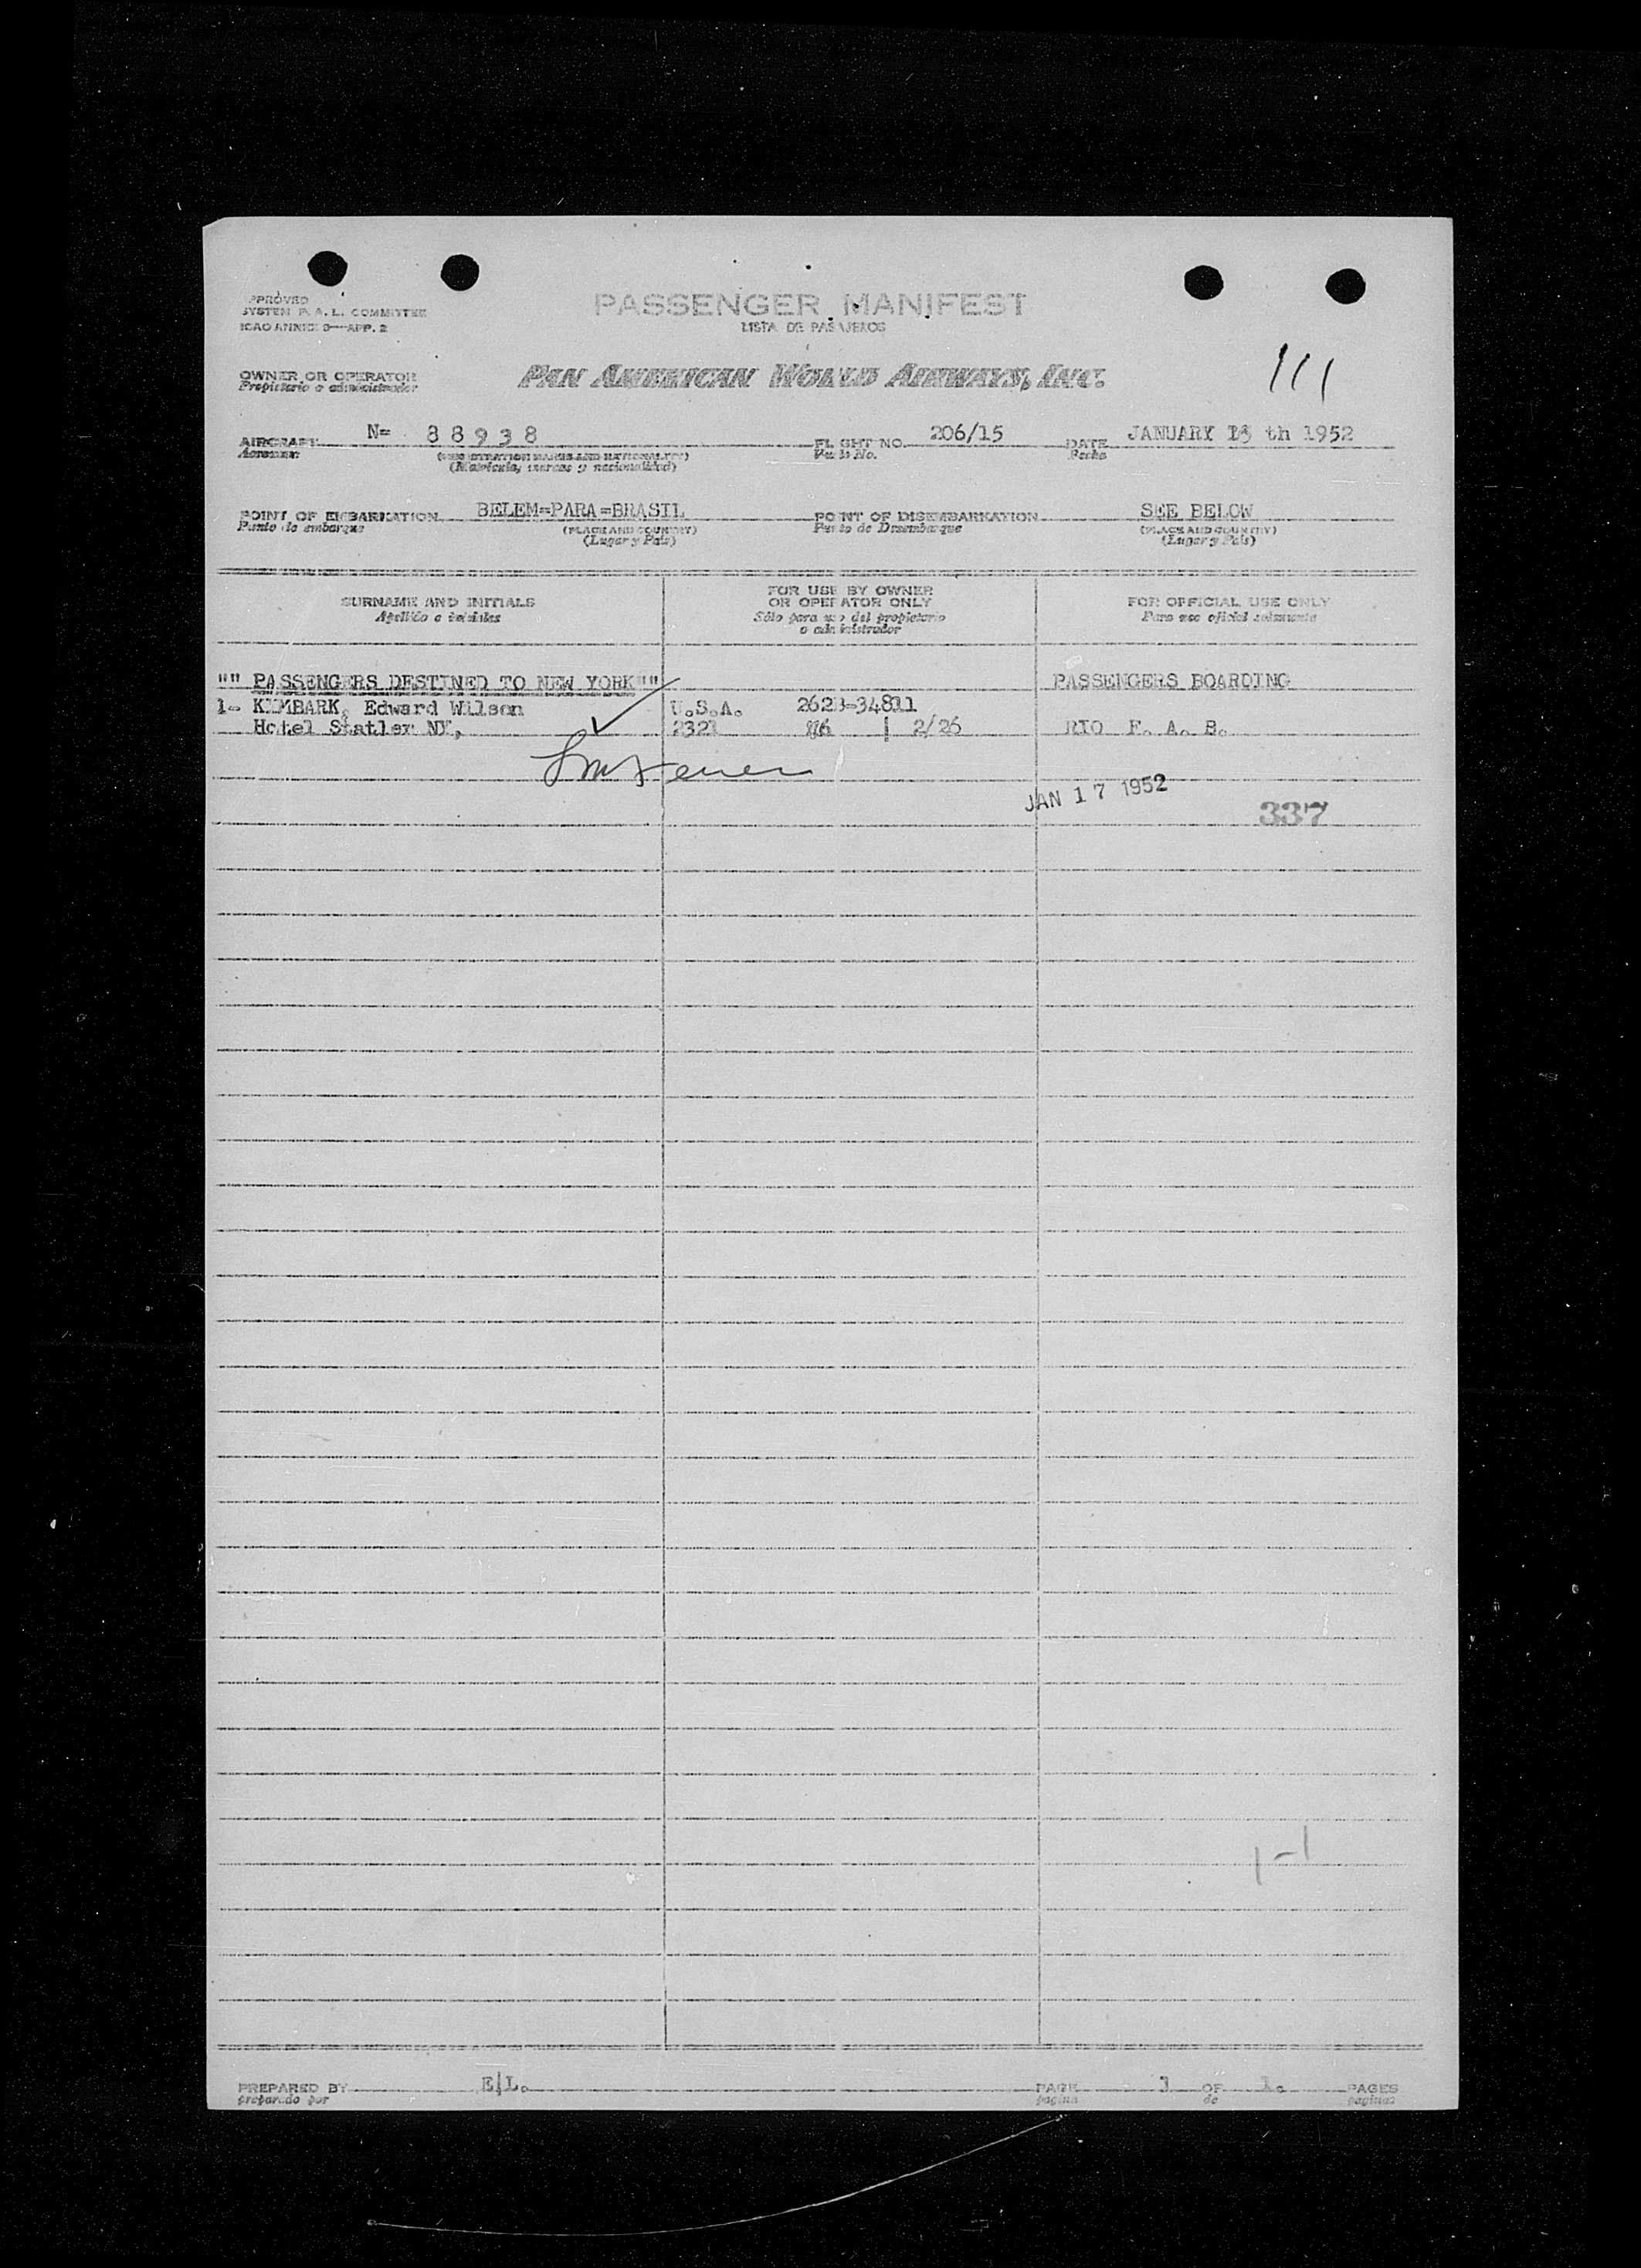 APPROVED
SYSTEM F. A. L. COMMITTEE
ICAO ANNEX 9—APP. 2
PASSENGER MANIFEST
LISTA DE PASAJEROS
OWNER OR OPERATOR
Propietario o administrador
PAN AMERICAN WORLD AIRWAYS, INC.
111
AIRCRAFT N= 88938 FLIGHT NO. 206/15 DATE JANUARY th 1952
Aeronave (REGISTRATION MARKS AND NATIONALITY) Vuelo No. Fecha
(Matrícula, marcas y nacionalidad)
POINT OF EMBARKATION BELEM=PARA=BRASIL POINT OF DISEMBARKATION SEE BELOW
Punto de embarque (PLACE AND COUNTRY) Punto de Desembarque (PLACE AND COUNTRY)
(Lugar y País) (Lugar y País)
SURNAME AND INITIALS
Apellido e iniciales
FOR USE BY OWNER
OR OPERATOR ONLY
Sólo para uso del propietario
o administrador
FOR OFFICIAL USE ONLY
Para uso oficial solamente
"" PASSENGERS DESTINED TO NEW YORK"" PASSENGERS BOARDING
1- KIMBARK, Edward Wilson U.S.A. 262B-34811
Hotel Statler NY, 2321 2/26 RIO F. A. B.
JAN 17 1952
337
1-1
PREPARED BY E/L. PAGE 1 OF 1. PAGES
preparado por pagina de paginas